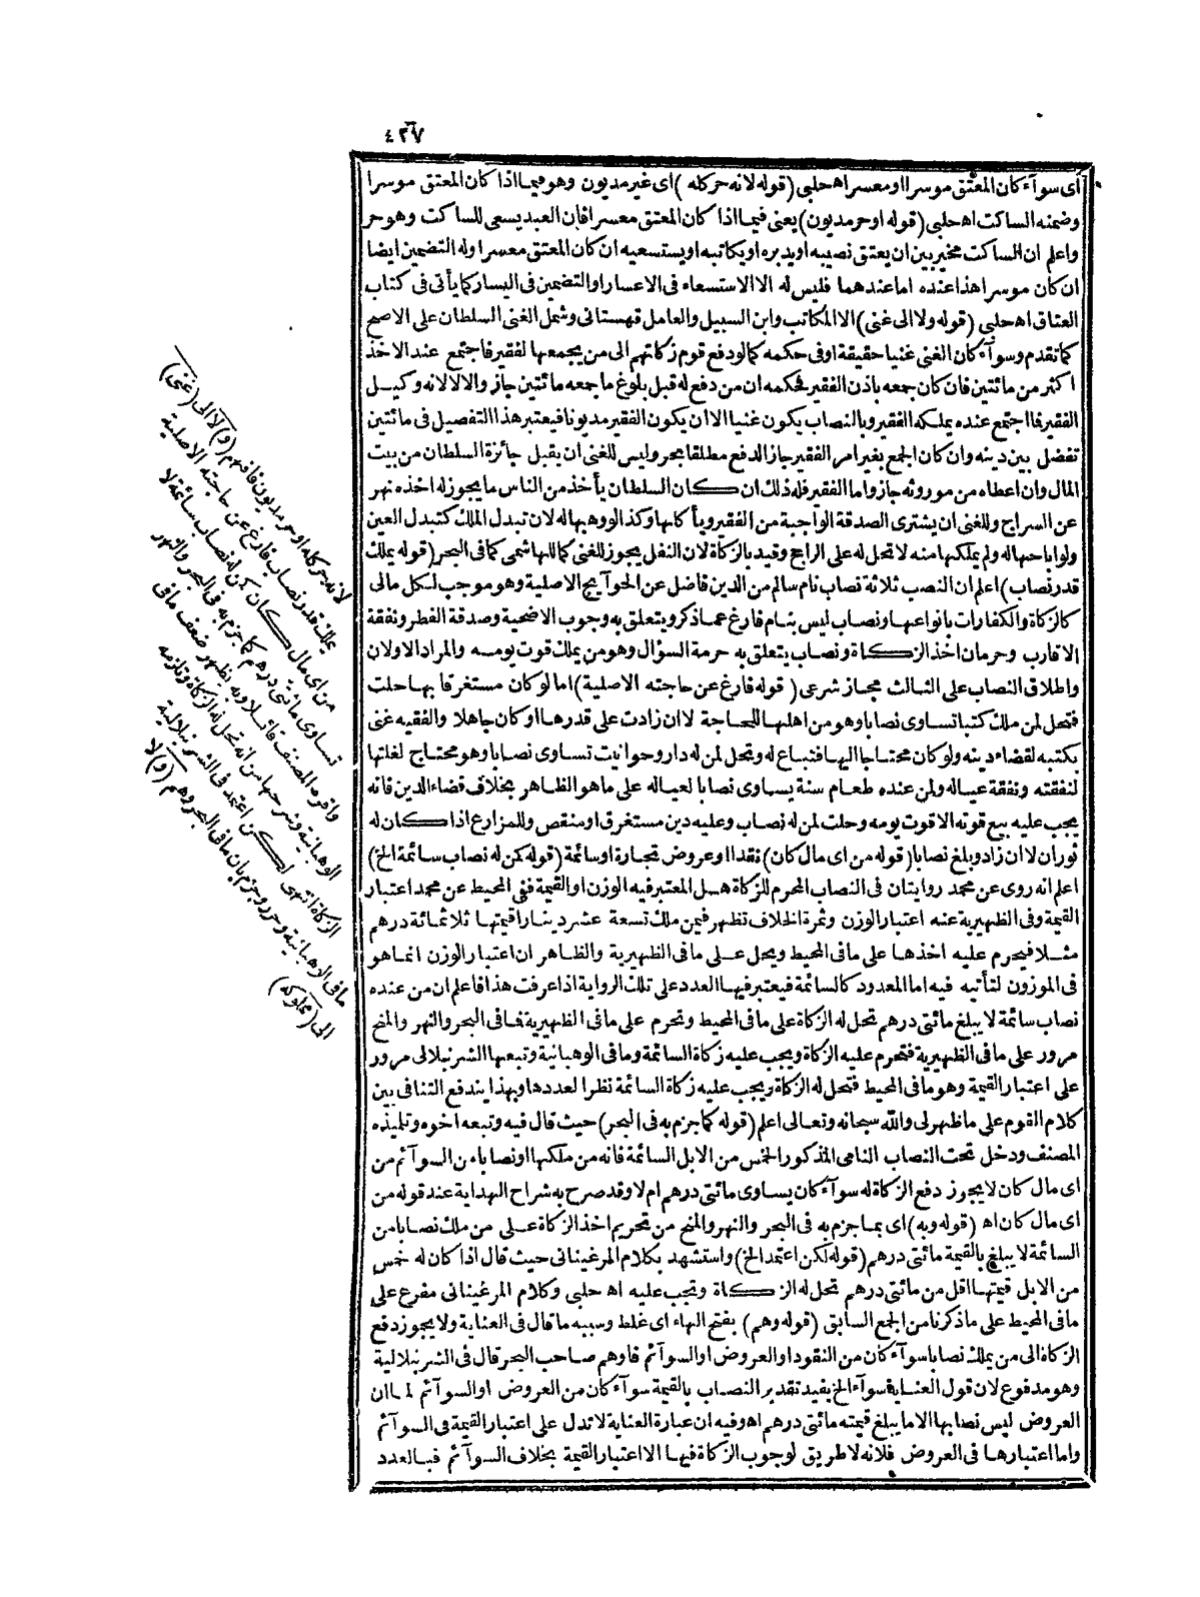 ٤٢٧
أى سوآء كان المعتق موسرا او معسرا اه حلبى (قوله لانه حر كله) اى غير مديون وهو فيما اذا كان المعتق موسرا
وضمنه الساكت اه حلبى (قوله او حر مديون) يعنى فيما اذا كان المعتق معسرا فان العبد يسعى للساكت وهو حر
واعلم ان الساكت مخير بين ان يعتق نصيبه او يدبره او يكاتبه او يستسعيه ان كان المعتق معسرا وله التضمين ايضا
ان كان موسرا هذا عنده اما عندهما فليس له الا الاستسعاء فى الاعسار او التضمين فى اليسار كما يأتى فى كتاب
العتاق اه حلبى (قوله ولا الى غنى) الا المكاتب وابن السبيل والعامل قهستانى وشمل الغنى السلطان على الاصح
كما تقدم وسوآء كان الغنى غنيا حقيقة او فى حكمه كما لو دفع قوم زكاتهم الى من يجمعها لفقير فاجتمع عند الاخذ
اكثر من مائتين فان كان جمعه باذن الفقير فحكمه ان من دفع له قبل بلوغ ما جمعه مائتين جاز والا لا لانه وكيل
الفقير فما اجتمع عنده يملكه الفقير وبالنصاب يكون غنيا الا ان يكون الفقير مديونا فيعتبر هذا التفصيل فى مائتين
تفضل بين دينه وان كان الجمع بغير امر الفقير جاز الدفع مطلقا بحر وليس للغنى ان يقبل جائزة السلطان من بيت
المال وان اعطاه من موروثه جاز واما الفقير فله ذلك ان كان السلطان يأخذ من الناس ما يجوز له اخذه نهر
عن السراج وللغنى ان يشترى الصدقة الواجبة من الفقير ويأكلها وكذا لو وهبها له لان تبدل الملك كتبدل العين
ولو اباحها له ولم يملكها منه لا تحل له على الراجح وقيد بالزكاة لان النفل يجوز للغنى كما للهاشمى كما فى البحر (قوله يملك
قدر نصاب) اعلم ان النصب ثلاثة نصاب نام سالم من الدين فاضل عن الحوآيج الاصلية وهو موجب لكل مالى
كالزكاة والكفارات بانواعها ونصاب ليس بنام فارغ عما ذكر ويتعلق به وجوب الاضحية وصدقة الفطر ونفقة
الاقارب وحرمان اخذ الزكاة ونصاب يتعلق به حرمة السؤال وهو من يملك قوت يومه والمراد الاولان
واطلاق النصاب على الثالث مجاز شرعى (قوله فارغ عن حاجته الاصلية) اما لو كان مستغرقا بها حلت
فتحل لمن ملك كتبا تساوى نصابا وهو من اهلها للحاجة لا ان زادت على قدرها او كان جاهلا والفقيه غنى
بكتبه لقضاء دينه ولو كان محتاجا اليها فتباع له وتحل لمن له دار وحوانيت تساوى نصابا وهو محتاج لغلتها
لنفقته ونفقة عياله ولمن عنده طعام سنة يساوى نصابا لعياله على ما هو الظاهر بخلاف قضاء الدين فانه
يجب عليه بيع قوته الا قوت يومه وحلت لمن له نصاب وعليه دين مستغرق او منقص وللمزارع اذا كان له
ثوران لا ان زاد وبلغ نصابا (قوله من اى مال كان) نقدا او عروض تجارة او سائمة (قوله كمن له نصاب سائمة الخ)
اعلم انه روى عن محمد روايتان فى النصاب المحرم للزكاة هل المعتبر فيه الوزن او القيمة ففى المحيط عن محمد اعتبار
القيمة وفى الظهيرية عنه اعتبار الوزن وثمرة الخلاف تظهر فيمن ملك تسعة عشر دينارا قيمتها ثلاثمائة درهم
مثلا فيحرم عليه اخذها على ما فى المحيط ويحل على ما فى الظهيرية والظاهر ان اعتبار الوزن انما هو
فى الموزون لتأتيه فيه اما المعدود كالسائمة فيعتبر فيها العدد على تلك الرواية اذا عرفت هذا فاعلم ان من عنده
نصاب سائمة لا يبلغ مائتى درهم تحل له الزكاة على ما فى المحيط وتحرم على ما فى الظهيرية فما فى البحر والنهر والمنح
مرور على ما فى الظهيرية فتحرم عليه الزكاة ويجب عليه زكاة السائمة وما فى الوهبانية وتبعها الشرنبلالى مرور
على اعتبار القيمة وهو ما فى المحيط فتحل له الزكاة ويجب عليه زكاة السائمة نظرا لعددها وبهذا يندفع التنافى بين
كلام القوم على ما ظهر لى والله سبحانه وتعالى اعلم (قوله كما جزم به فى البحر) حيث قال فيه وتبعه اخوه وتلميذه
المصنف ودخل تحت النصاب النامى المذكور الخمس من الابل السائمة فانه من ملكها او نصابا من السوآئم من
اى مال كان لا يجوز دفع الزكاة له سوآء كان يساوى مائتى درهم ام لا وقد صرح به شراح الهداية عند قوله من
اى مال كان اه (قوله وبه) اى بما جزم به فى البحر والنهر والمنح من تحريم اخذ الزكاة على من ملك نصابا من
السائمة لا يبلغ بالقيمة مائتى درهم (قوله لكن اعتمد الخ) واستشهد بكلام المرغينانى حيث قال اذا كان له خمس
من الابل قيمتها اقل من مائتى درهم تحل له الزكاة وتجب عليه اه حلبى وكلام المرغينانى مفرع على
ما فى المحيط على ما ذكرنا من الجمع السابق (قوله وهم) بفتح الهاء اى غلط وسببه ما قال فى العناية ولا يجوز دفع
الزكاة الى من يملك نصابا سوآء كان من النقود او العروض او السوآئم فاوهم صاحب البحر قال فى الشرنبلالية
وهو مدفوع لان قول العناية سوآء الخ يفيد تقدير النصاب بالقيمة سوآء كان من العروض او السوآئم لما ان
العروض ليس نصابها الا ما يبلغ قيمته مائتى درهم اه وفيه ان عبارة العناية لا تدل على اعتبار القيمة فى السوآئم
واما اعتبارها فى العروض فلانه لا طريق لوجوب الزكاة فيها الا اعتبار القيمة بخلاف السوآئم فبالعدد
لانه حر كله او حر مديون فافهم (و) لا الى (غنى)
يملك قدر نصاب فارغ عن حاجته الاصلية
من اى مال كان كمن له نصاب سائمة لا
تساوى مائتى درهم كما جزم به فى البحر والنهر
واقره المصنف قائلا وبه يظهر ضعف ما فى
الوهبانية وشرحها من انه تحل له الزكاة وتلزمه
الزكاة انتهى لكن اعتمد فى الشرنبلالية
ما فى الوهبانية وحرر وجزم بان ما فى البحر وهم (و) لا
الى (مملوكه)